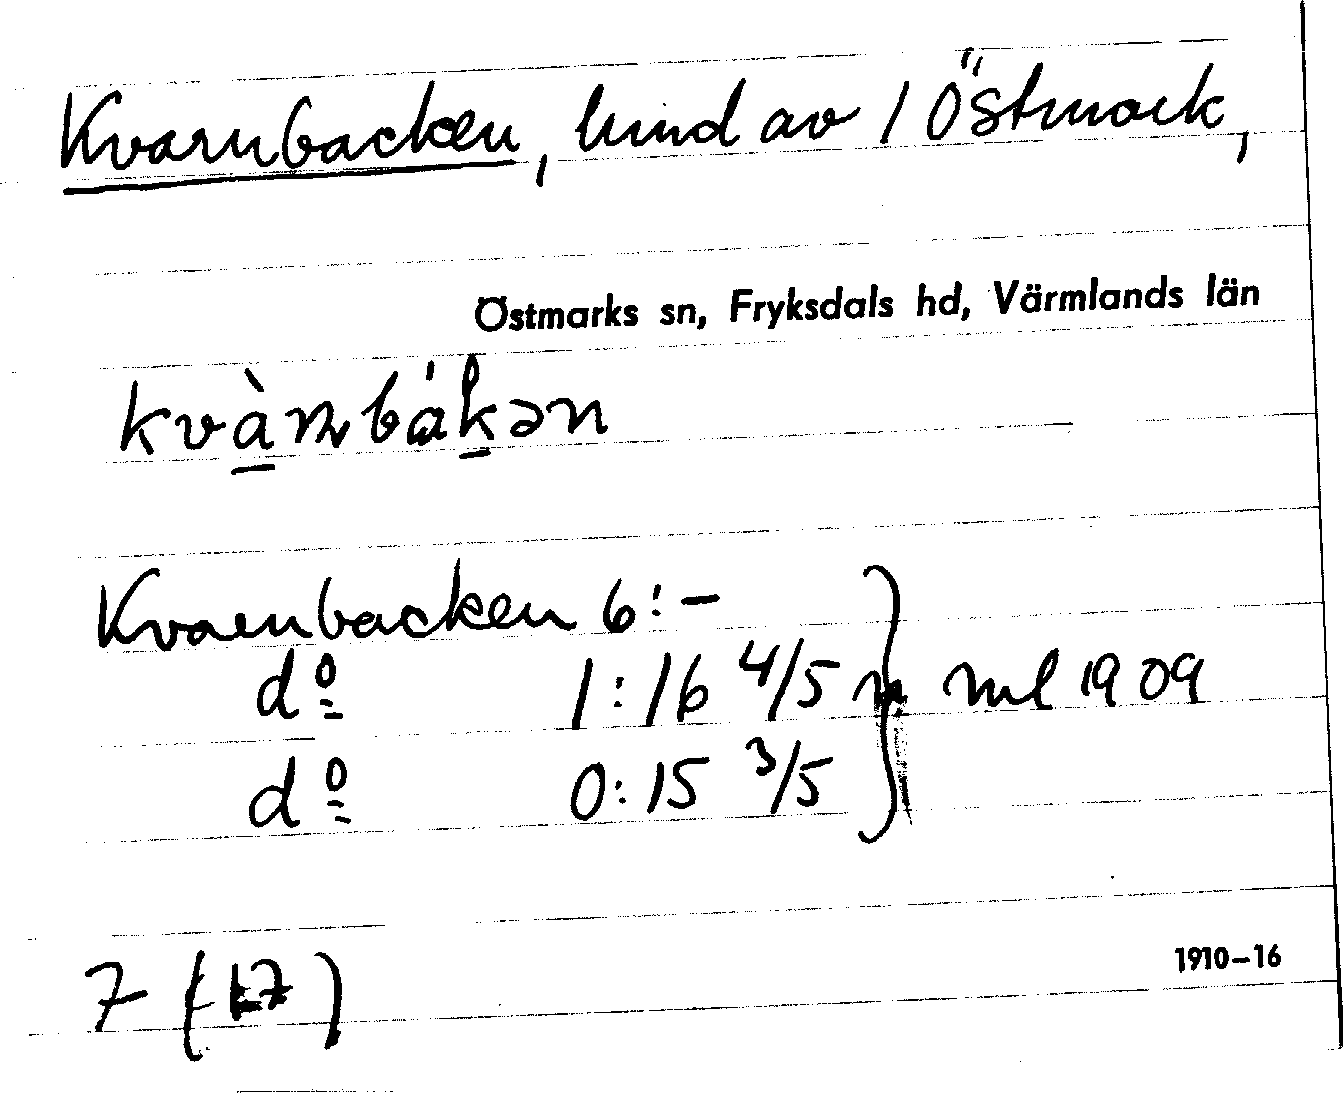 Kvarnbacken, lund av 1 Östmark,
Östmarks sn, Fryksdals hd, Värmlands län
kvàm̲bákən
Kvarnbacken 6:-
do 1:16 4/5 ml 1909
do 0:15 3/5
7 (17)
1910–16